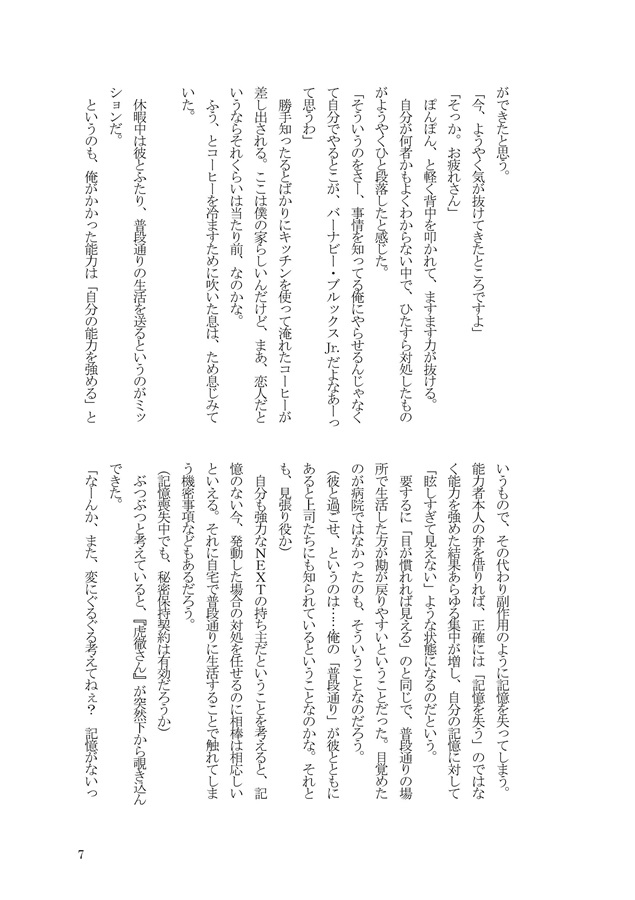 ができたと思う。
「今、ようやく気が抜けてきたところですよ」
「そっか。お疲れさん」
　ぽんぽん、と軽く背中を叩かれて、ますます力が抜ける。
　自分が何者かもよくわからない中で、ひたすら対処したもの
がようやくひと段落したと感じた。
「そういうのをさー、事情を知ってる俺にやらせるんじゃなく
て自分でやるとこが、バーナビー・ブルックスJr.だよなあーっ
て思うわ」
　勝手知ったるとばかりにキッチンを使って淹れたコーヒーが
差し出される。ここは僕の家らしいんだけど、まあ、恋人だと
いうならそれくらいは当たり前、なのかな。
　ふう、とコーヒーを冷ますために吹いた息は、ため息じみて
いた。
　休暇中は彼とふたり、普段通りの生活を送るというのがミッ
ションだ。
　というのも、俺がかかった能力は「自分の能力を強める」と
いうもので、その代わり副作用のように記憶を失ってしまう。
能力者本人の弁を借りれば、正確には「記憶を失う」のではな
く能力を強めた結果あらゆる集中が増し、自分の記憶に対して
「眩しすぎて見えない」ような状態になるのだという。
　要するに「目が慣れれば見える」のと同じで、普段通りの場
所で生活した方が勘が戻りやすいということだった。目覚めた
のが病院ではなかったのも、そういうことなのだろう。
（彼と過ごせ、というのは……俺の「普段通り」が彼とともに
あると上司たちにも知られているということなのかな。それと
も、見張り役か）
　自分も強力なNEXTの持ち主だということを考えると、記
憶のない今、発動した場合の対処を任せるのに相棒は相応しい
といえる。それに自宅で普段通りに生活することで触れてしま
う機密事項などもあるだろう。
（記憶喪失中でも、秘密保持契約は有効だろうか）
　ぶつぶつと考えていると、『虎徹さん』が突然下から覗き込ん
できた。
「なーんか、また、変にぐるぐる考えてねぇ？　記憶がないっ
7